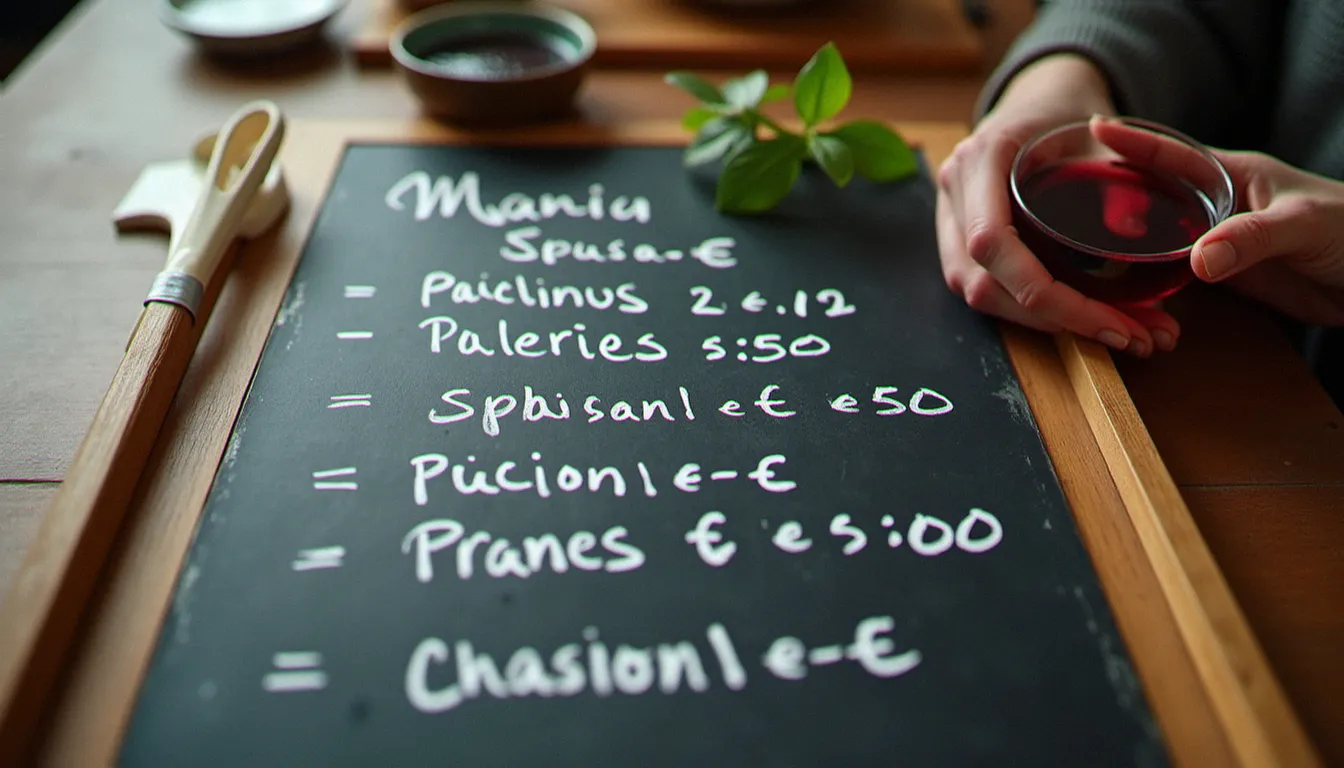 Maniu
Spusa-€
= Paiclinus 2 €.12
– Paleries s:50
= Spbisanl e € e50
= Pücionl €-€
= Pranes € e s:00
= Chasionl e-€